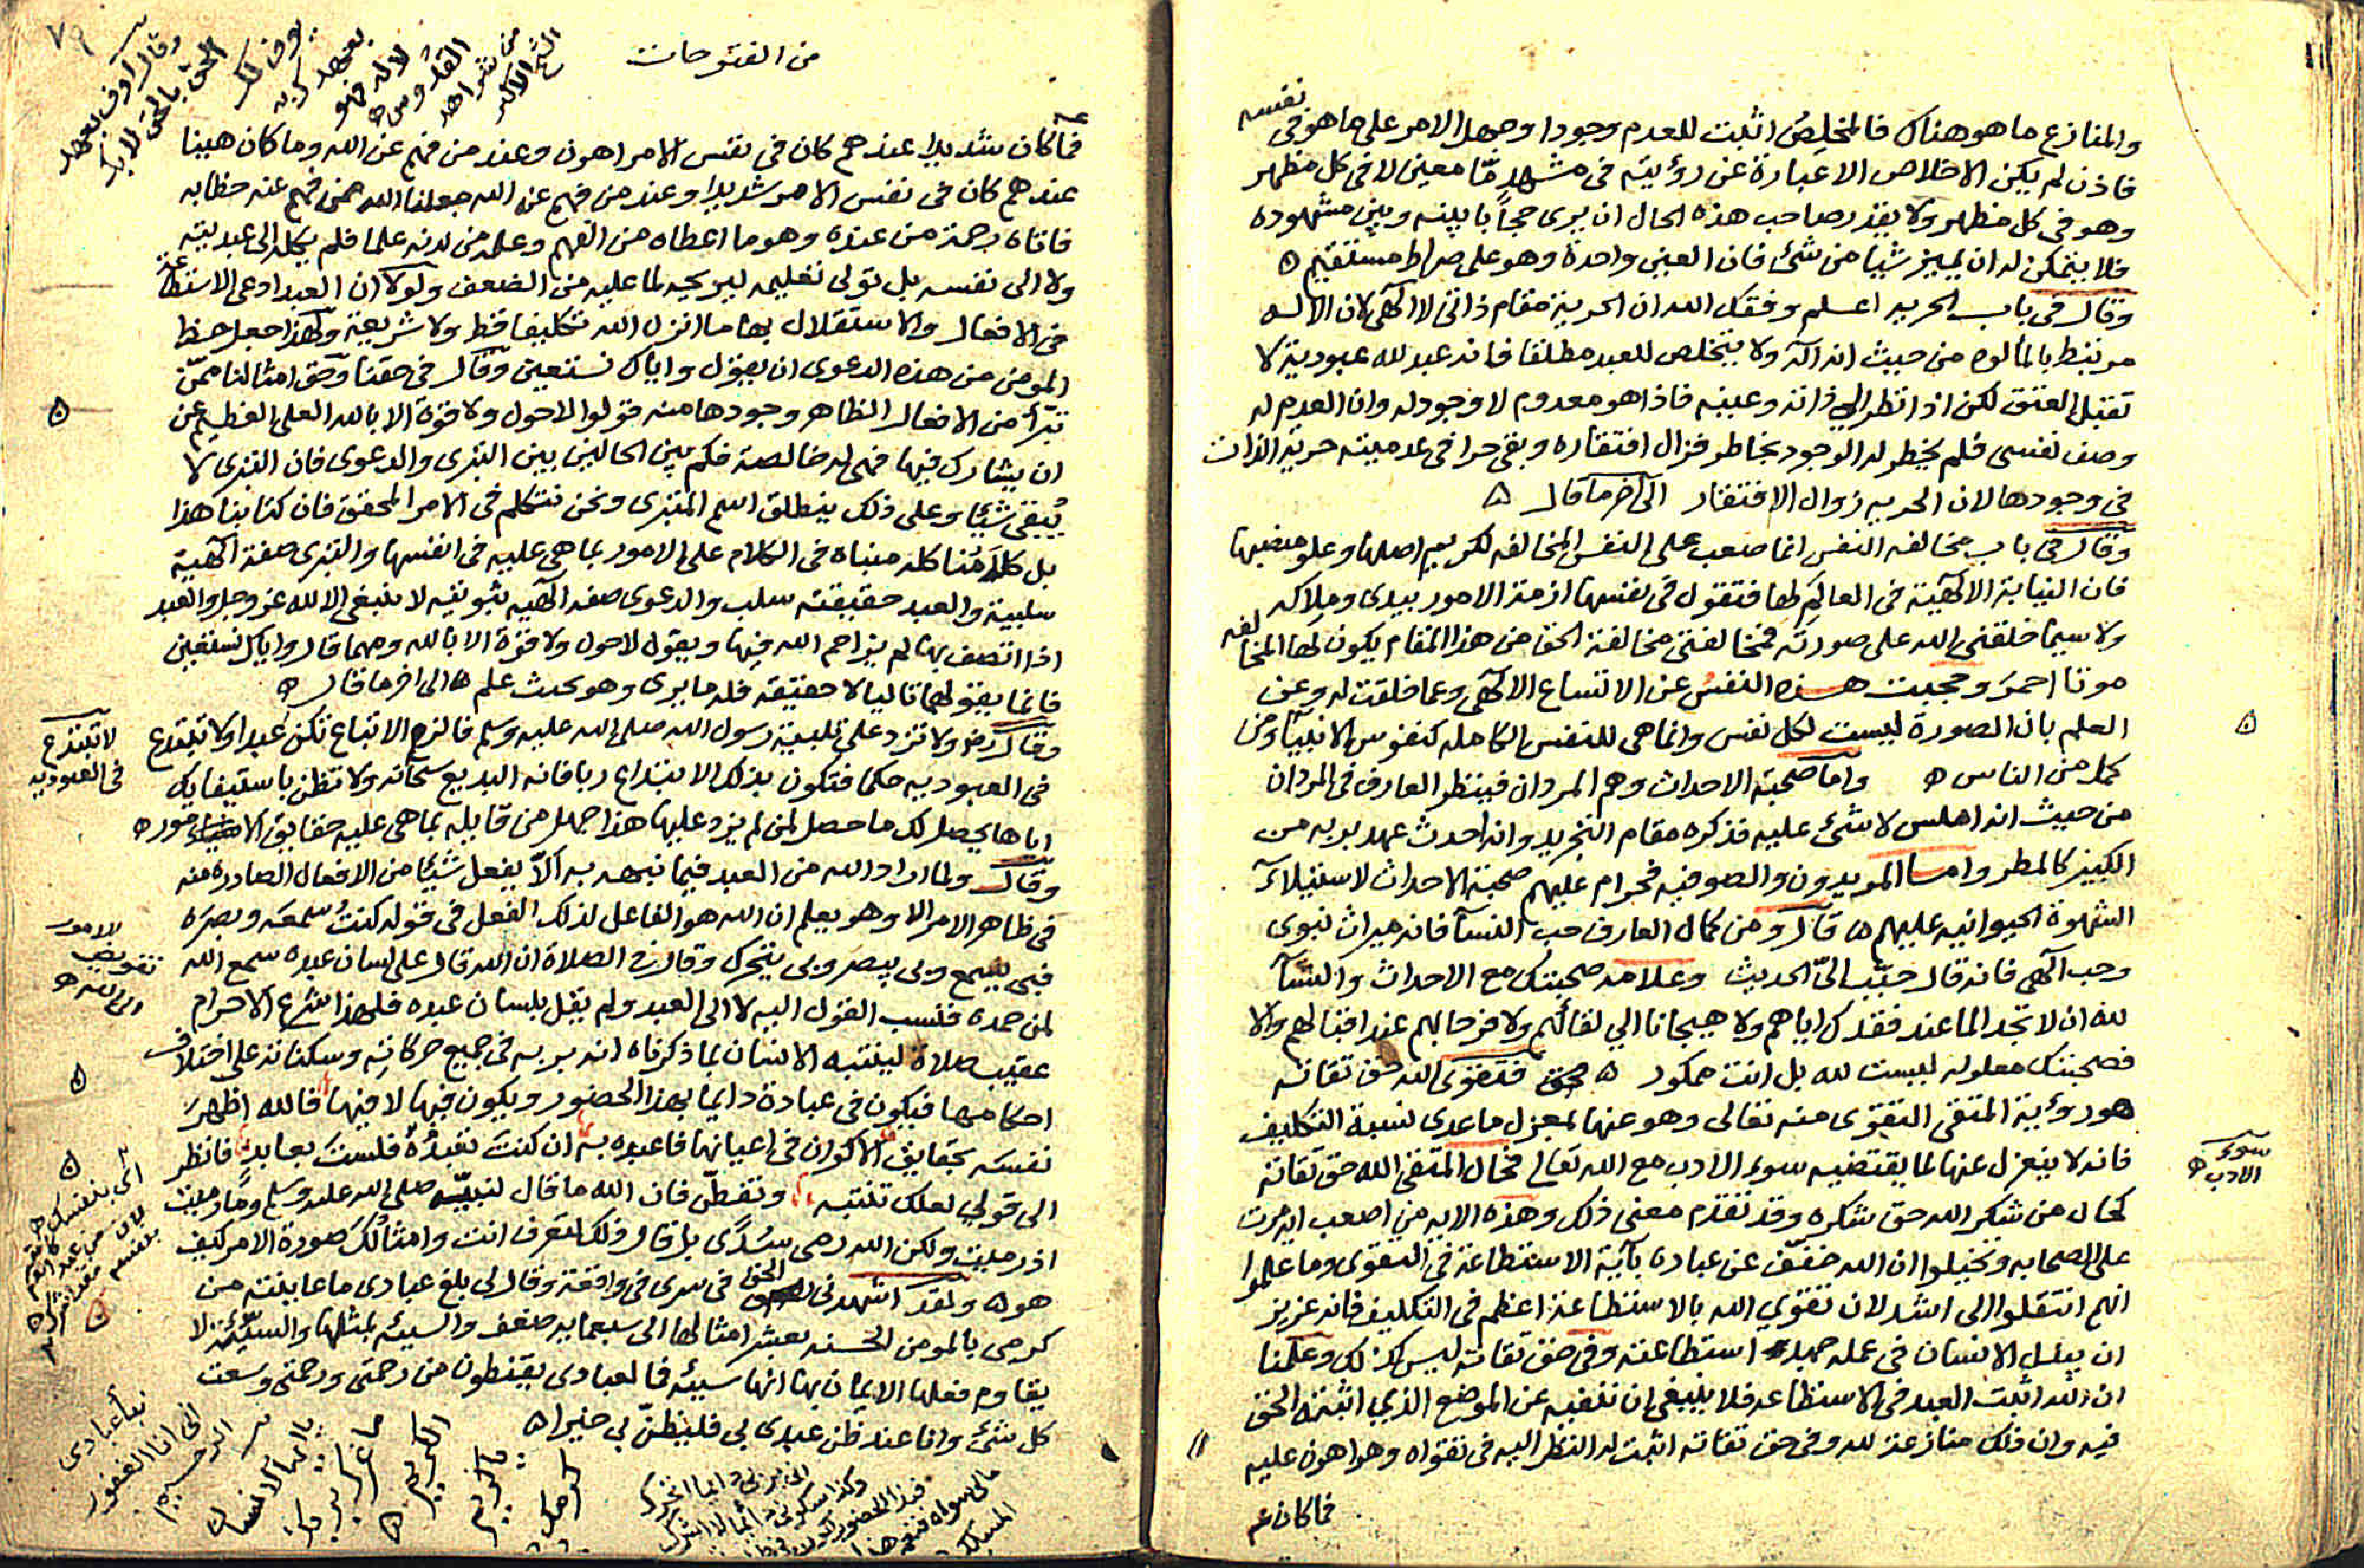 نفسه
والمنازع ما هو هناك فالمخلص اثبت للعدم وجودا وجهل الامر على ما هو في
فاذن لم يكن الاخلاص الا عبارة عن رؤيته في مشهد مّا معين لا في كل مظهر
وهو في كل مظهر ولا يقدر صاحب هذه الحال ان يرى حجاً با بينه وبين مشهوده
فلا يتمكن له ان يميز شيا من شئ فان العين واحدة وهو على صراط مستقيم ه
وقال في باب الحريه اعلم وفقك الله ان الحرية مقام ذاتى لا الٓهي لان الاله
مرتبط بالمألوه من حيث انه الٓه ولا يتخلص للعبد مطلقا فانه عبد لله عبودية لا
تقبل العتق لكن اذا نظر الي ذاته وعينه فاذا هو معدوم لا وجود له وان العدم له
وصف نفسى فلم يخطر له الوجود بخاطر فزال افتقاره وبقي حرا في عدميته حرية الذات
في وجودها لان الحريه زوال الافتقار الى اخر ما قال ه
وقال في باب مخالفه النفس انما صعب على النفس المخالفه لكريم اصلها وعلو منصبها
فان النيابة الالٓهية في العالم لها فتقول في نفسها ازمة الامور بيدى وملاكه
ولا سيما خلقني الله على صورته فمخالفتي مخالفة الحق من هذا المقام يكون لها المخالفه
موتا احمر وحجبت هذه النفس عن الاتساع الالٓهي وعما خلقت له وعن
العلم بان الصورة ليست لكل نفس وانما هي للنفس الكامله كنفوس الانبيآ ومن
كمل من الناس ه واما صحبة الاحداث وهم المردان فينظر العارف في المردان
من حيث انه املس لا شئ عليه فذكره مقام التجريد وانه احدث عهد بربه من
الكبير كالمطر واما المريدون والصوفيه فحرام عليهم صحبة الاحداث لاستيلآء
الشهوة الحيوانيه عليهم ه قال ومن كمال العارف حب النسآ فانه ميراث نبوى
وحب الٓهي فانه قال حبّب الىّ الحديث وعلامه صحبتك مع الاحداث والنسآ
لله ان لا تجد الما عند فقدك اياهم ولا هيجانا الي لقائهم ولا فرحا بهم عند اقبالهم والا
فصحبتك معلوله ليست لله بل انت ممكور ه فتقوى الله حق تقاته
هو رؤية المتقي التقوى منه تعالى وهو عنها بمعزل ما عدى نسبة التكليف
فانه لا ينعزل عنها لما يقتضيه سوء الادب مع الله تعالى فحال المتقي الله حق تقاته
كحال من شكر الله حق شكره وقد تقدم معنى ذلك وهذه الايه من اصعب ايه مرت
على الصحابه وتخيلوا ان الله خفف عن عباده بآية الاستطاعة في التقوى وما علموا
انهم انتقلوا الى اشد لان تقوي الله بالاستطاعة اعظم في التكليف فانه عزيز
ان يبذل الانسان في عمله جهد استطاعته وفي حق تقاته ليس كذلك وعلمنا
ان الله اثبت العبد في الاستطاعه فلا ينبغي ان ننفيه عن الموضع الذي اثبته الحق
فيه وان ذلك منازعة لله وفي حق تقاته اثبت له النظر اليه في تقواه وهو اهون عليه
فما كان
سوء
الادب ه
من الفتوحات
فما كان شديدا عندهم كان في نفس الامر اهون وعند من فهم عن الله وما كان هينا
عندهم كان في نفس الامر شديدا وعند من فهم عن الله جعلنا الله ممن فهم عنه خطابه
فاتاه رحمة من عنده وهو ما اعطاه من الفهم وعلمه من لدنه علما فلم يكله الى عبديته
ولا الى نفسه بل تولى تعليمه ليريحه لما عليه من الضعف ولولا ان العبد ادعى الاستطاعة
في الافعال والاستقلال بها ما انزل الله تكليفا قط ولا شريعة ولهذا جعل حظ
المومن من هذه الدعوى ان يقول واياك نستعين وقال في حقنا وحق امثالنا ممّن
تبرّأ من الافعال الظاهر وجودها منه قولوا لا حول ولا قوة الا بالله العلي العظيم عن
ان يشارك فيها فهى له خالصة فكم بين الحالين بين التبرى والدعوى فان التبرى لا
يُبقى شئيا وعلى ذلك ينطلق اسم المتبرى ونحن نتكلم في الامر المحقق فان كتابنا هذا
بل كلامنا كله مبناه في الكلام على الامور بما هي عليه في انفسها والتبرى صفة الٓهية
سلبية والعبد حقيقته سلب والدعوى صفه الٓهيه ثبوتيه لا تنبغي الا لله عز وجل والعبد
اذا اتصف بها لم يزاحم الله فيها ويقول لا حول ولا قوة الا بالله ومهما قال واياك نستعين
فانما يقولها تاليا لا حقيقة فله ما يرى وهو بحيث علم ه الى اخر ما قال ه
وقال ولا تزد على تلبية رسول الله صلى الله عليه وسلم فالزم الاتباع تكن عبدا ولا تبتدع
في العبوديه حكما فتكون بذلك الابتداع ربا فانه البديع سبحانه ولا تظن باستيفايك
اياها يحصل لك ما حصل لمن لم يزد عليها هذا جهل من قابله بما هي عليه حقايق الامور ه
وقال ولما اراد الله من العبد فيما نبهه به الّا يفعل شئيا من الافعال الصادره منه
في ظاهر الامر الا وهو يعلم ان الله هو الفاعل لذلك الفعل في قوله كنت سمعه وبصره
فبى يسمع وبي يبصر وبي يتحرك وقال في الصلاة ان الله قال على لسان عبده سمع الله
لمن حمده فنسب القول اليه لا الى العبد ولم يقل بلسان عبده فلهذا شرع الاحرام
عقيب صلاة لينتبه الانسان بما ذكرناه انه بربه في جميع حركاته وسكناته على اختلاف
احكامها فيكون في عبادة دايما بهذا الحضور ويكون فيها لا فيها فالله اظهر
نفسه بحقايق الاكوان في اعيانها فاعبده به ان كنت تعبده فلست بعابد فانظر
الى قولي لعلك تنتبه وتفطن فان الله ما قال لنبيّه صلى الله عليه وسلم وما رميت
اذ رميت ولكن الله رمى سدًى بل قال ذلك لتعرف انت وامثالك صورة الامر كيف
هو ه ولقد اشهدنى الحق في سرى في واقعة وقال لي بلغ عبادى ما عاينته من
كرمى بالمومن الحسنه بعشر امثالها الى سبعمايه ضعف والسيئه بمثلها والسيّئة لا
يقاوم فعلها الايمان بها انها سيئه فما لعبادى يقنطون من رحمتى ورحمتي وسعت
كل شئ وانا عند ظن عبدى بي فليظنّ بي خيرا ه
لا تبتدع
في العبوديه
تفويض
الامور
نبأ عبادى
انى انا الغفور
الرحيم
يا ايها الانسان
ما غرك بربك
الكريم ه
كرمك
يا كريم